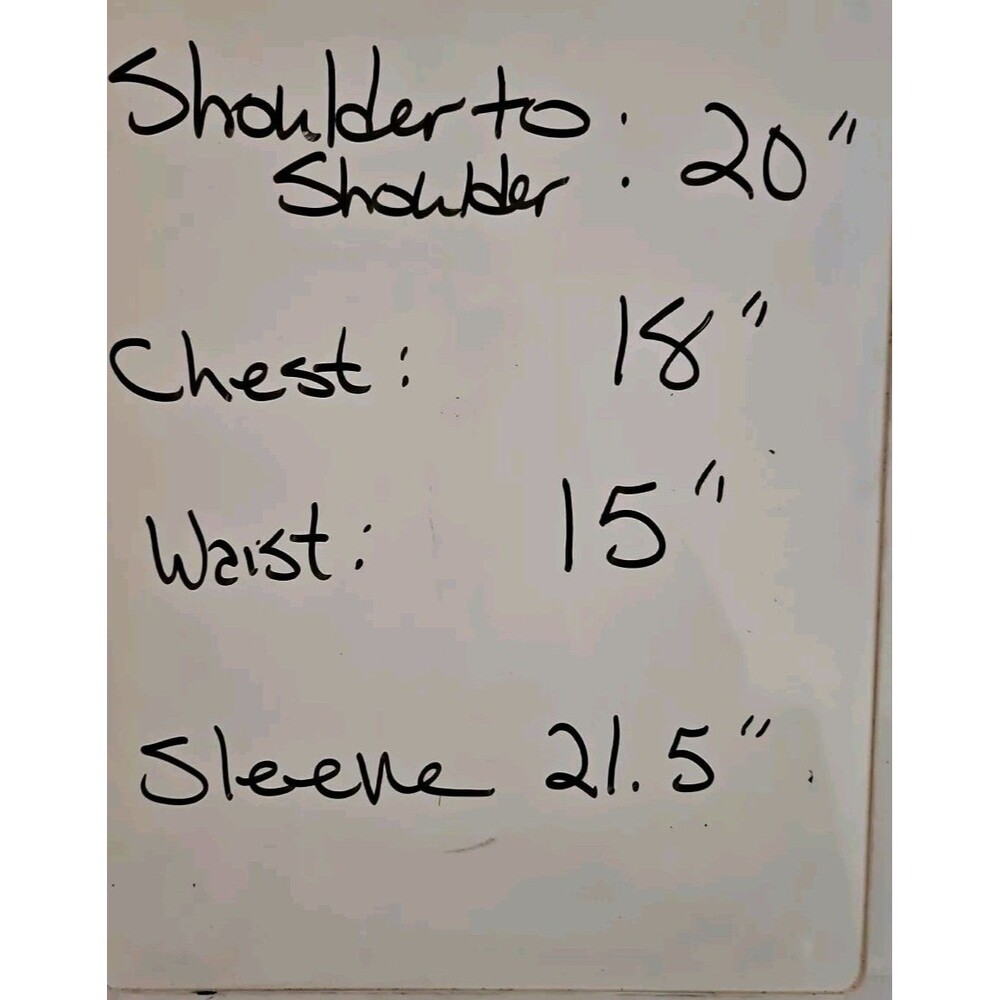 Shoulder to
Shoulder : 20"
Chest: 18"
Waist: 15"
Sleeve 21.5"